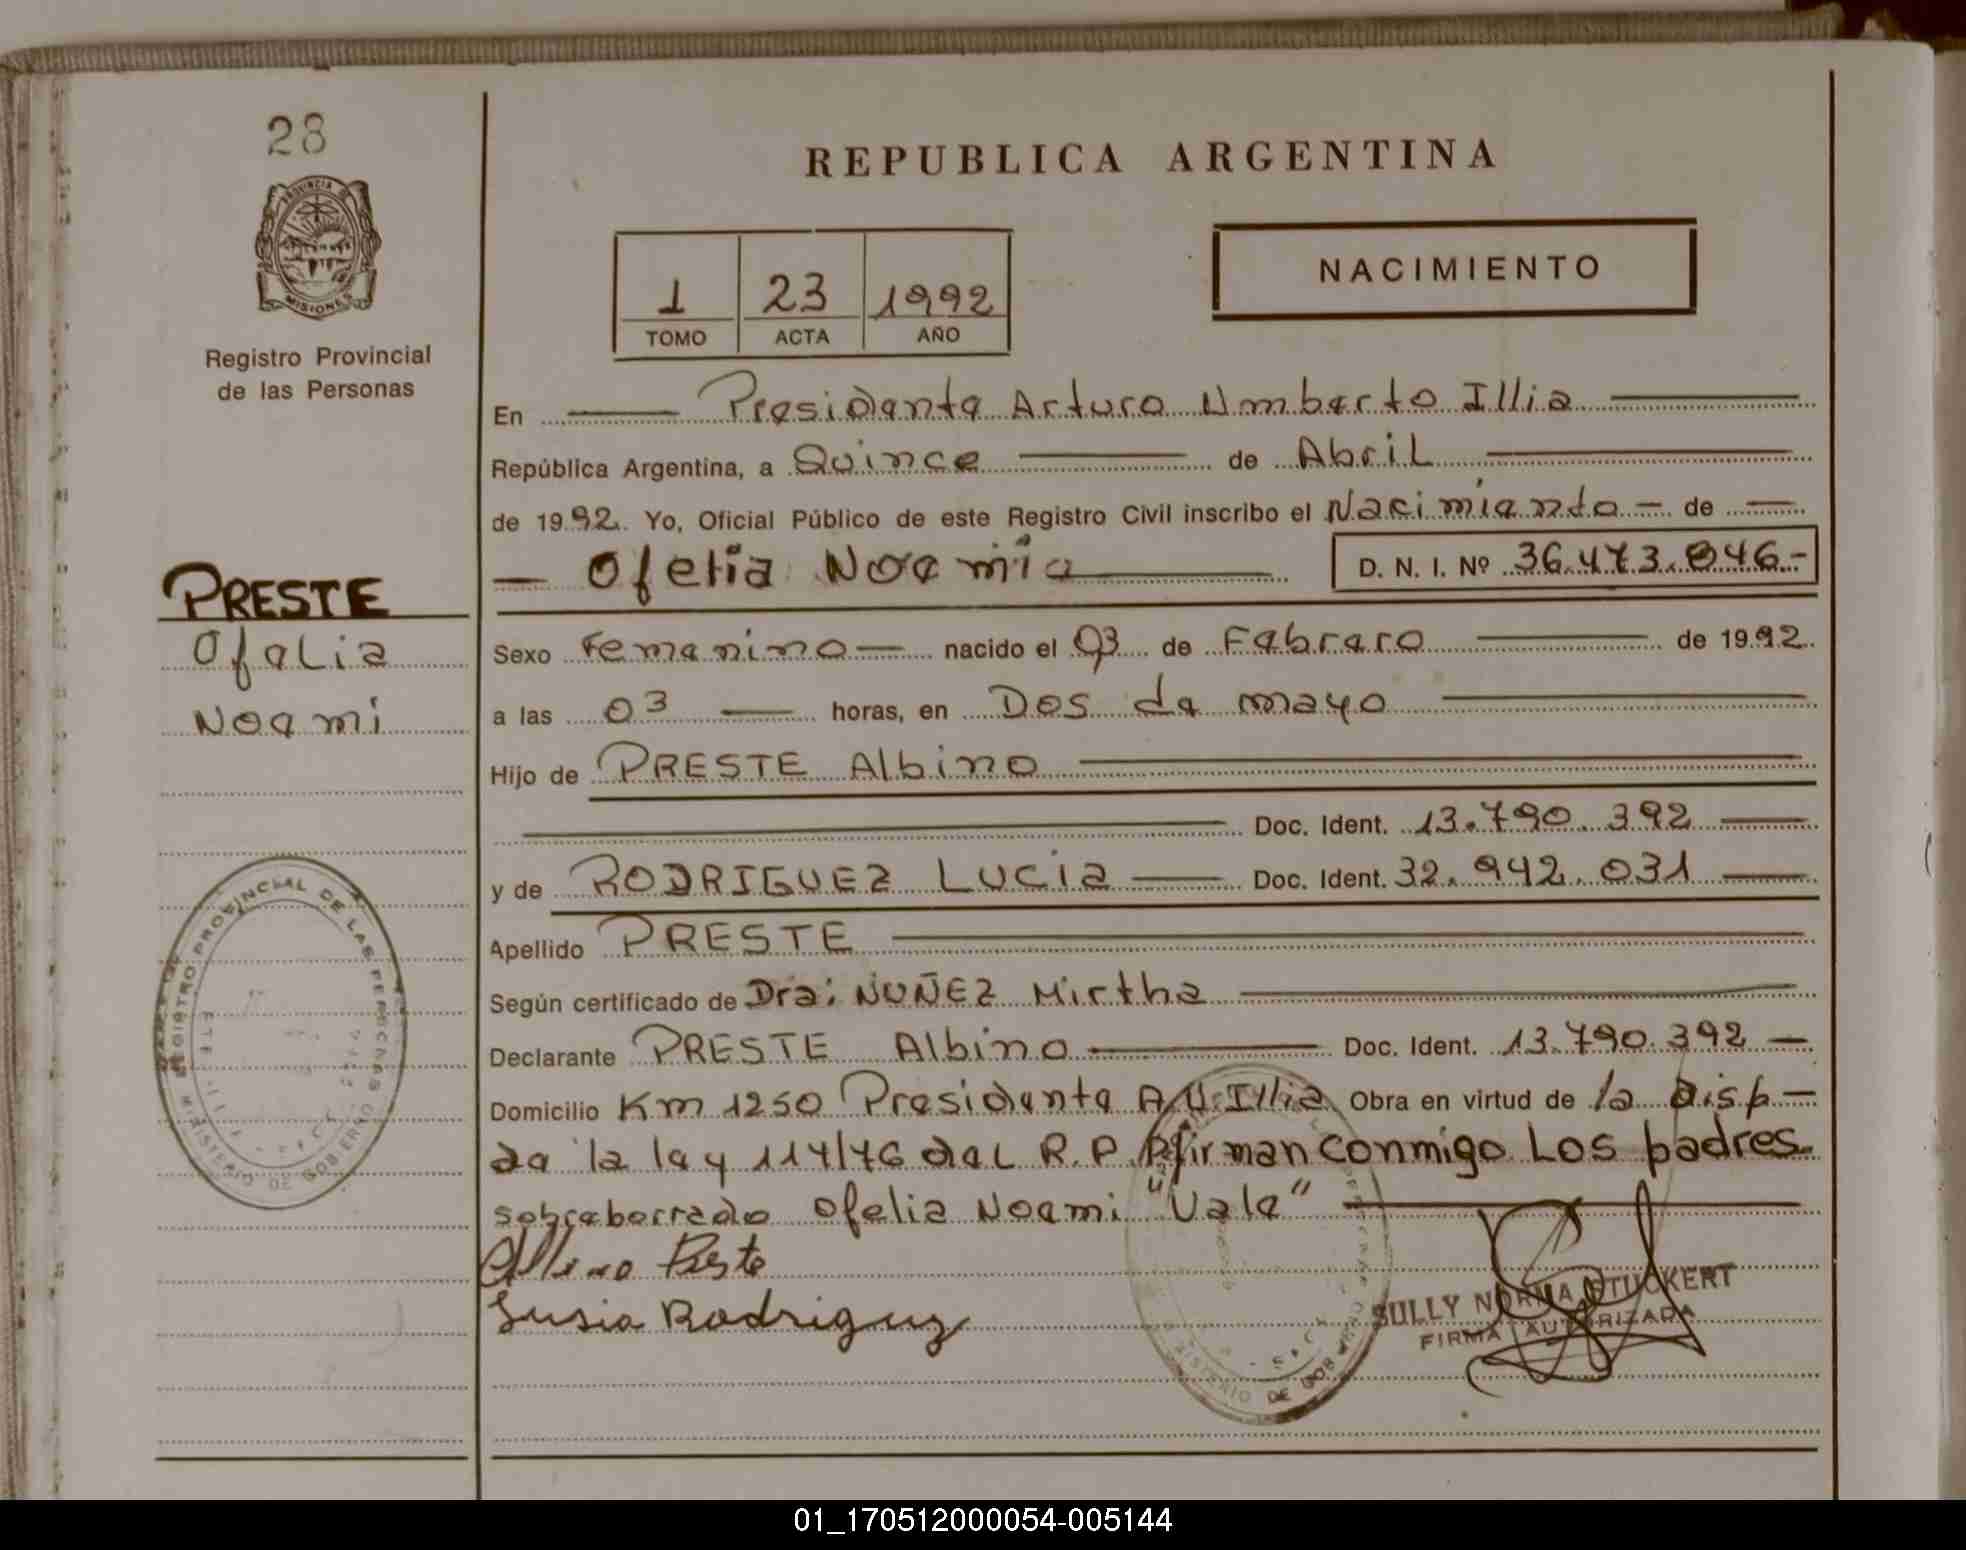 28
PROVINCIA DE
MISIONES
Registro Provincial
de las Personas
PRESTE
Ofelia
Noemi
REGISTRO PROVINCIAL DE LAS PERSONAS
MINISTERIO DE GOBIERNO
REPUBLICA ARGENTINA
1 23 1992
TOMO ACTA AÑO
NACIMIENTO
En Presidente Arturo Umberto Illia
República Argentina, a Quince de Abril
de 1992. Yo, Oficial Público de este Registro Civil inscribo el Nacimiento - de
Ofelia Noemia D. N. I. Nº 36.473.046.-
Sexo Femenino nacido el 03 de Febrero de 1992.
a las 03 horas, en Dos de mayo
Hijo de PRESTE Albino
Doc. Ident. 13.790.392
y de RODRIGUEZ LUCIA Doc. Ident. 32.942.031
Apellido PRESTE
Según certificado de Dra: NUÑEZ Mirtha
Declarante PRESTE Albino Doc. Ident. 13.790.392
Domicilio Km 1250 Presidente A.U. Illia Obra en virtud de la Disp-
de la ley 114/76 del R.P.P. firman conmigo Los padres.
sobreborrado Ofelia Noemi "Vale"
Albino Preste
Lusia Rodriguez
SULLY NORMA STUCKERT
FIRMA AUTORIZADA
MINISTERIO DE GOBIERNO
01_170512000054-005144